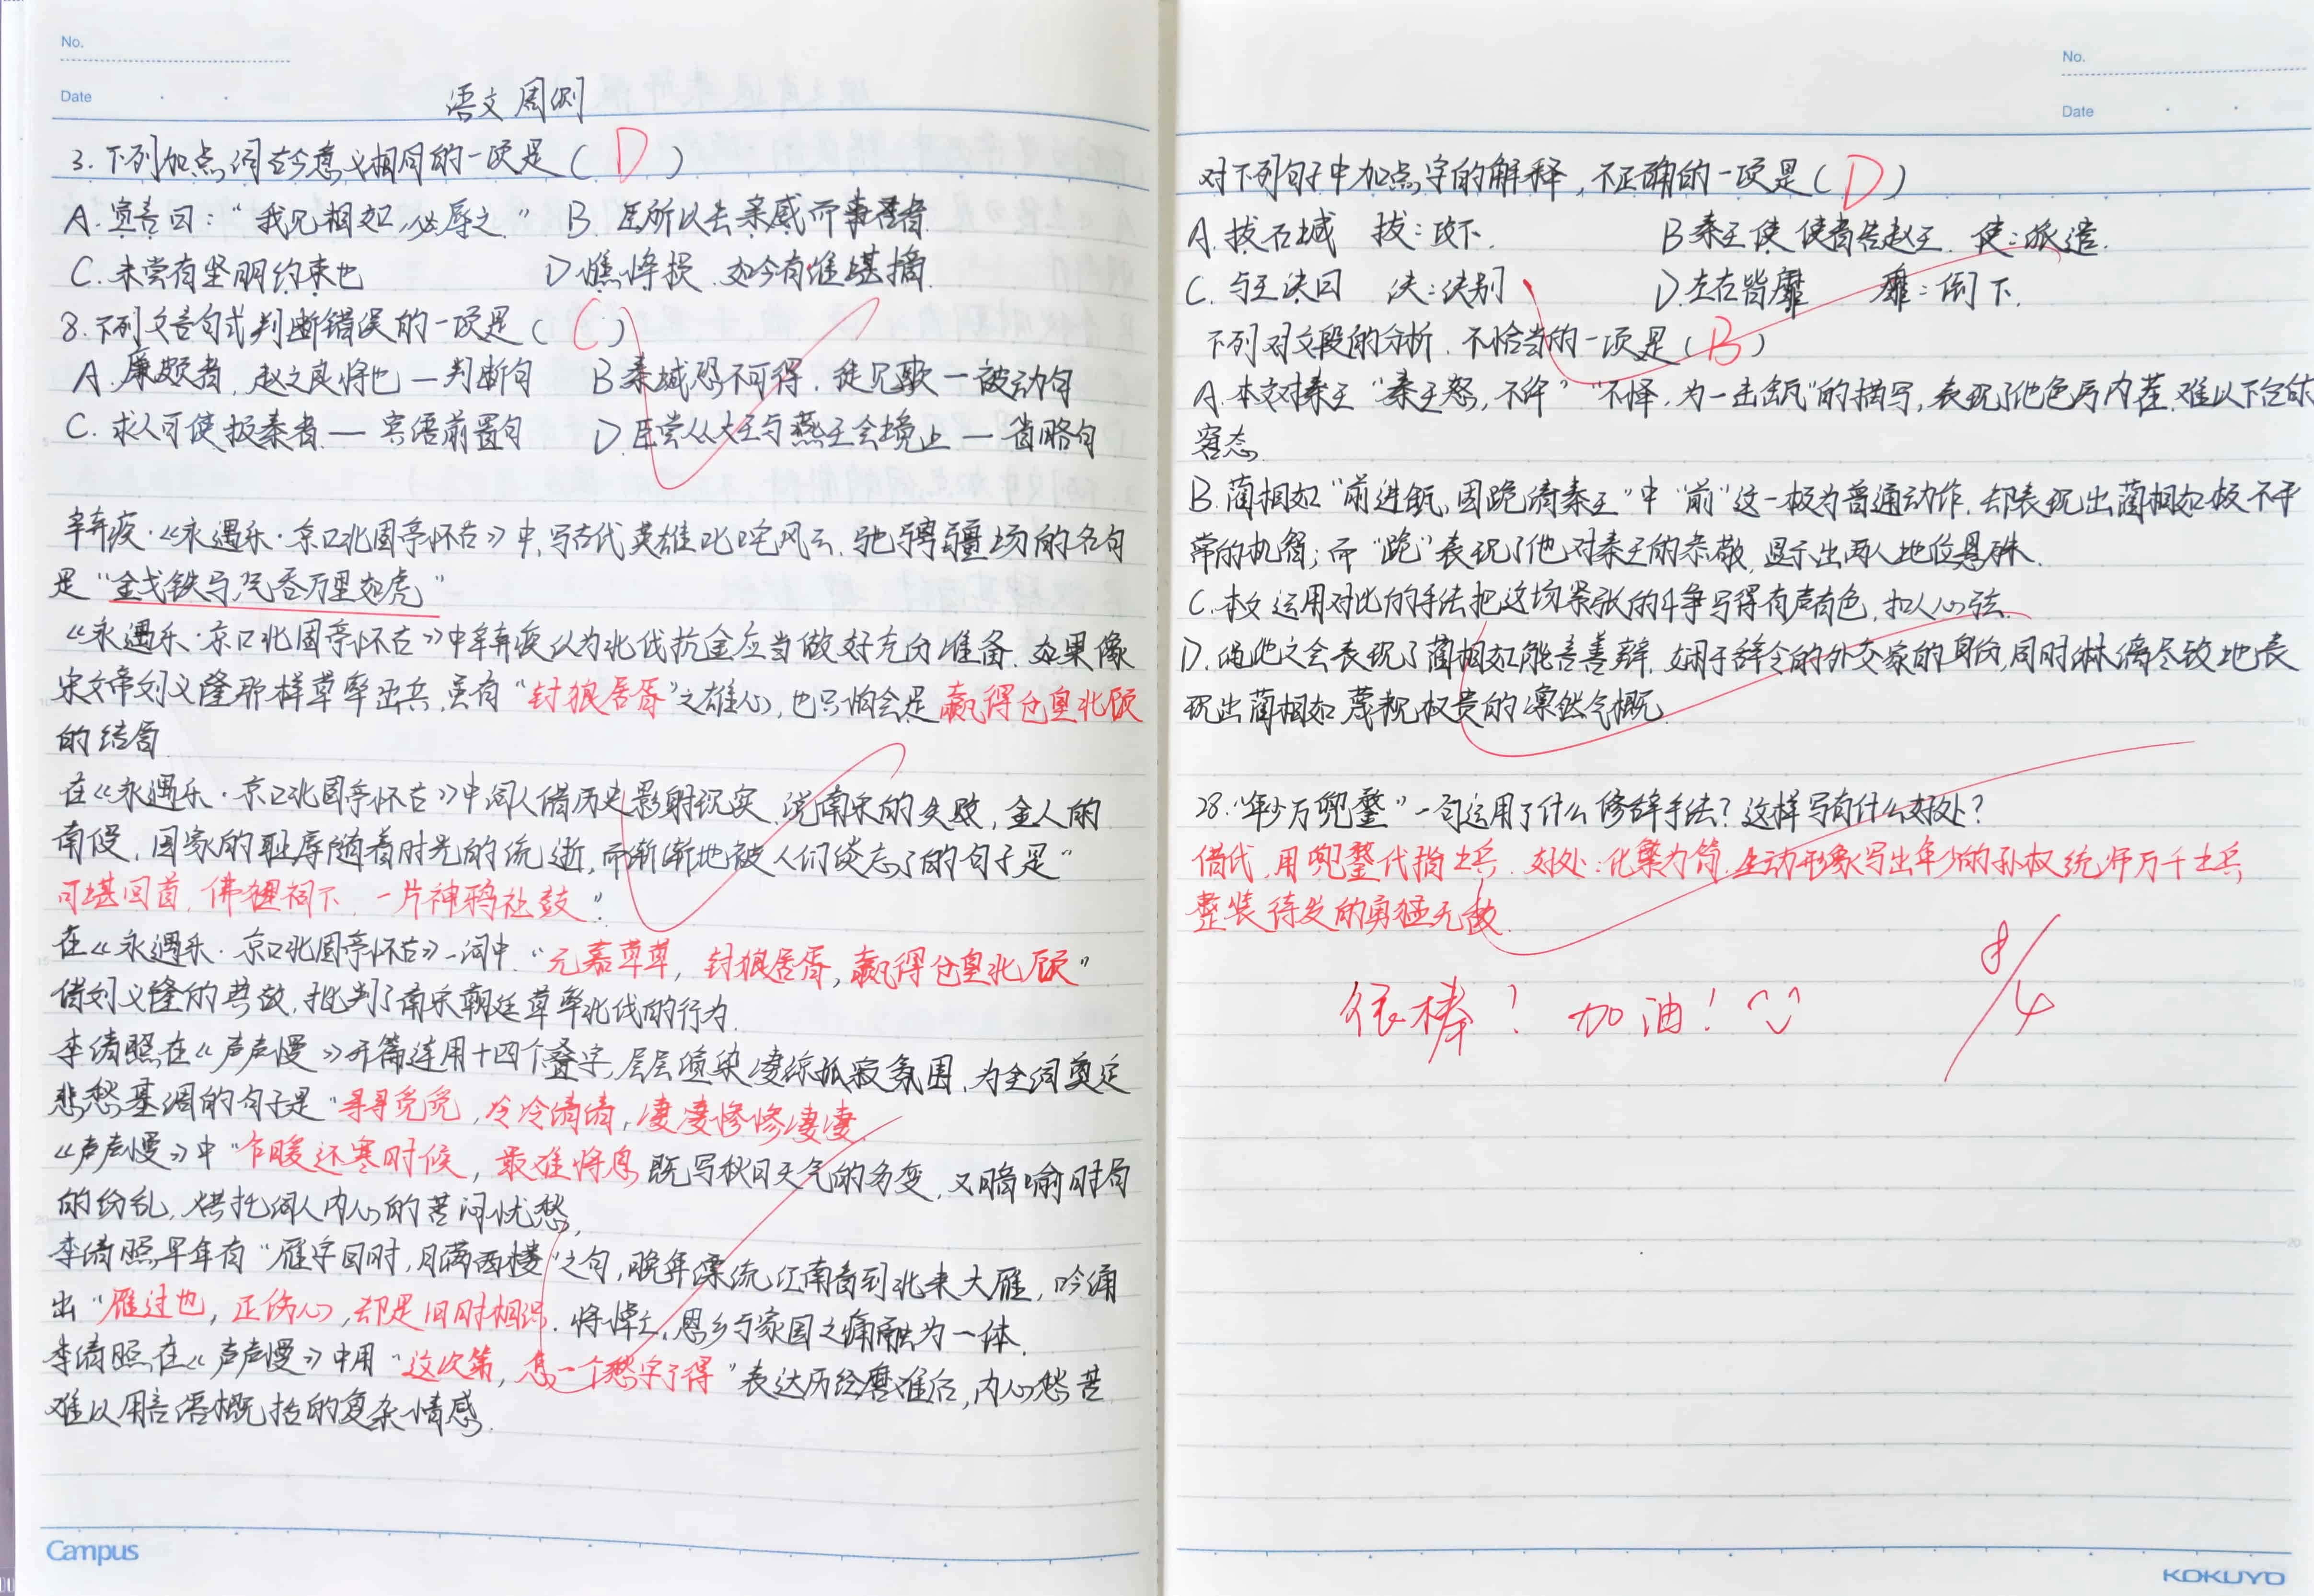 No.
Date
语文周测
3. 下列加点词古今意义相同的一项是（ D ）
A. 宣言曰：“我见相如，必辱之” B. 臣所以去亲戚而事君者
C. 未尝有坚明约束也 D 憔悴损．如今有谁堪摘
8. 下列文言句式判断错误的一项是（ C ）
A. 廉颇者，赵之良将也 — 判断句 B 秦城恐不可得，徒见欺 — 被动句
C. 求人可使报秦者 — 宾语前置句 D. 臣尝从大王与燕王会境上 — 省略句
辛弃疾·《永遇乐·京口北固亭怀古》中，写古代英雄叱咤风云，驰骋疆场的名句
是“金戈铁马，气吞万里如虎”
《永遇乐·京口北固亭怀古》中辛弃疾认为北伐抗金应当做好充分准备，如果像
宋文帝刘义隆那样草率出兵，虽有“封狼居胥”之雄心，也只怕会是赢得仓皇北顾
的结局
在《永遇乐·京口北固亭怀古》中词人借历史影射现实，说南宋的失败，金人的
南侵，国家的耻辱随着时光的流逝，而渐渐地被人们淡忘了的句子是“
可堪回首，佛狸祠下，一片神鸦社鼓”．
在《永遇乐·京口北固亭怀古》一词中，“元嘉草草，封狼居胥，赢得仓皇北顾”
借刘义隆的典故，批判了南宋朝廷草率北伐的行为．
李清照在《声声慢》开篇连用十四个叠字，层层渲染凄凉孤寂氛围，为全词奠定
悲愁基调的句子是“寻寻觅觅，冷冷清清，凄凄惨惨凄凄
《声声慢》中“乍暖还寒时候，最难将息 既写秋日天气的多变，又暗喻时局
的纷乱，烘托词人内心的苦闷忧愁，
李清照早年有“雁字回时，月满西楼”之句，晚年漂流江南看到北来大雁，吟诵
出“雁过也，正伤心，却是旧时相识．将悼亡，思乡与家国之痛融为一体．
李清照在《声声慢》中用“这次第，怎一个愁字了得”表达历经磨难后，内心愁苦
难以用言语概括的复杂情感．
Campus
No.
Date
对下列句子中加点字的解释，不正确的一项是（ D ）
A. 拔石城 拔：攻下． B 秦王使使者告赵王． 使：派遣．
C. 与王诀曰 诀：诀别 D. 左右皆靡 靡：倒下．
下列对文段的分析．不恰当的一项是（ B ）
A. 本文对秦王“秦王怒，不许”“不怿，为一击缻”的描写，表现了他色厉内荏，难以下台的
窘态．
B. 蔺相如“前进缻，因跪请秦王”中“前”这一极为普通动作，却表现出蔺相如极不平
常的机智；而“跪”表现了他对秦王的恭敬，显示出两人地位悬殊．
C. 本文运用对比的手法把这场紧张的斗争写得有声有色，扣人心弦
D. 渑池之会表现了蔺相如能言善辩，娴于辞令的外交家的身份，同时淋漓尽致地表
现出蔺相如蔑视权贵的凛然气概
28. “年少万兜鍪”一句运用了什么修辞手法？这样写有什么好处？
借代，用兜鍪代指士兵．好处：化繁为简，生动形象写出年少的孙权统帅万千士兵
整装待发的勇猛无敌
很棒！ 加油！
8/4
KOKUYO